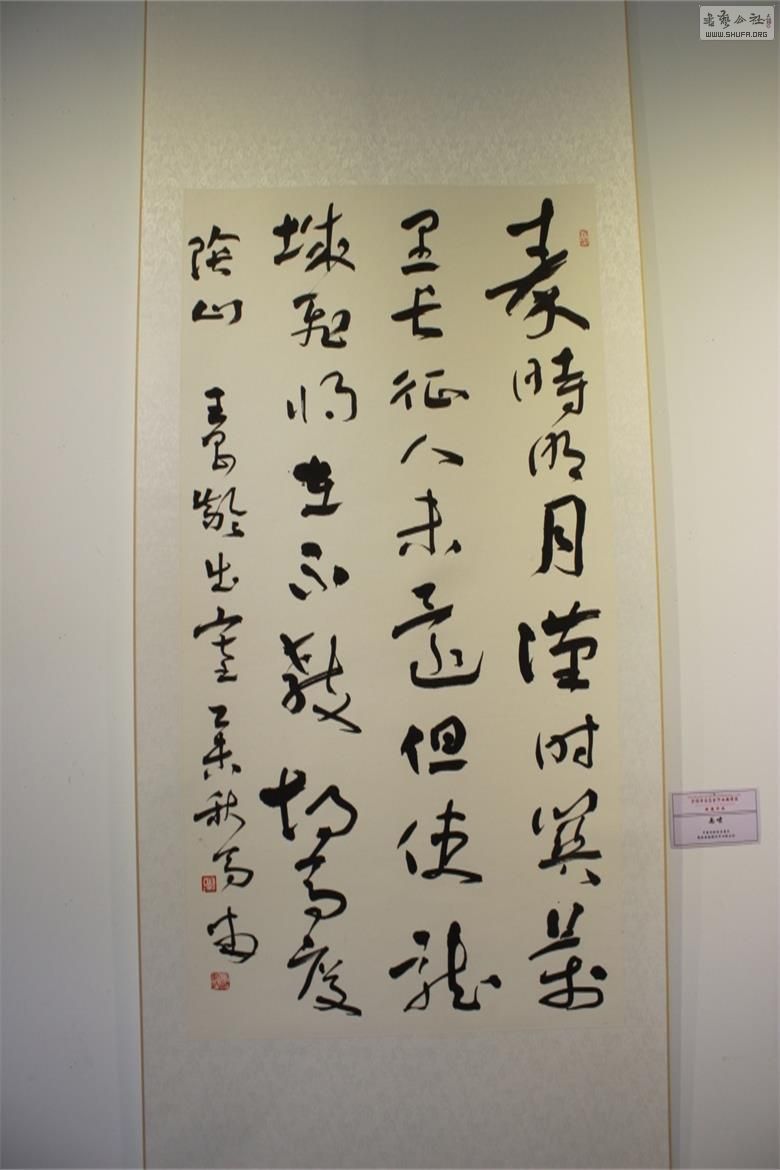 秦時明月漢時關萬
里長征人未還但使龍
城飛將在不教胡馬度
陰山 王昌齡出塞 乙未秋
書藝公社
WWW.SHUFA.ORG